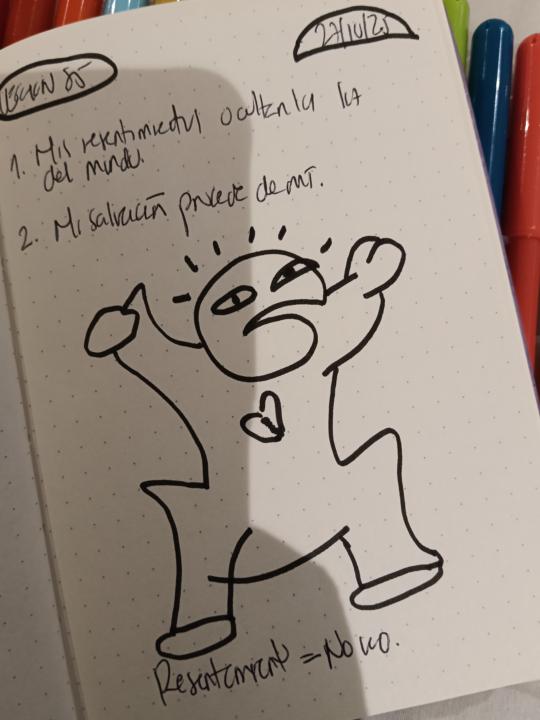 LECCIÓN 85
27/10/25
1. Mis resentimientos ocultan la luz
del mundo.
2. Mi salvación procede de mí.
Resentimiento = No veo.